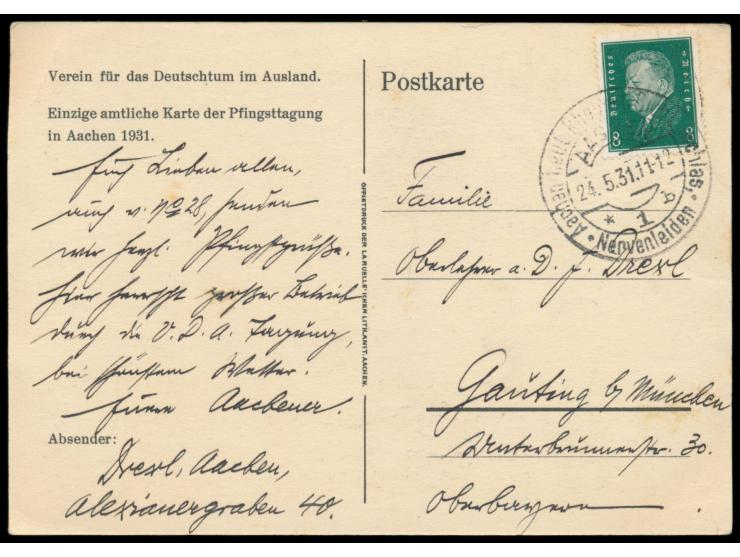 Verein für das Deutschtum im Ausland.
Einzige amtliche Karte der Pfingsttagung
in Aachen 1931.
Euch Lieben allen,
auch v. No 28, senden
wir herzl. Pfingstgrüße.
Hier herrscht großer Betrieb
durch die V. D. A. Tagung,
bei schönstem Wetter.
Eure Aachener.
Absender:
Drexl, Aachen,
Alexianergraben 40.
OFFSETDRUCK DER LA RUELLE'SCHEN LITH. ANST. AACHEN.
Postkarte
Deutsches Reich
8 8
Aachen
24.5.31.11-12
* 1 b
Nervenleiden
Familie
Oberlehrer a. D. J. Drexl
Gauting b/ München
Unterbrunnerstr. 30.
Oberbayern